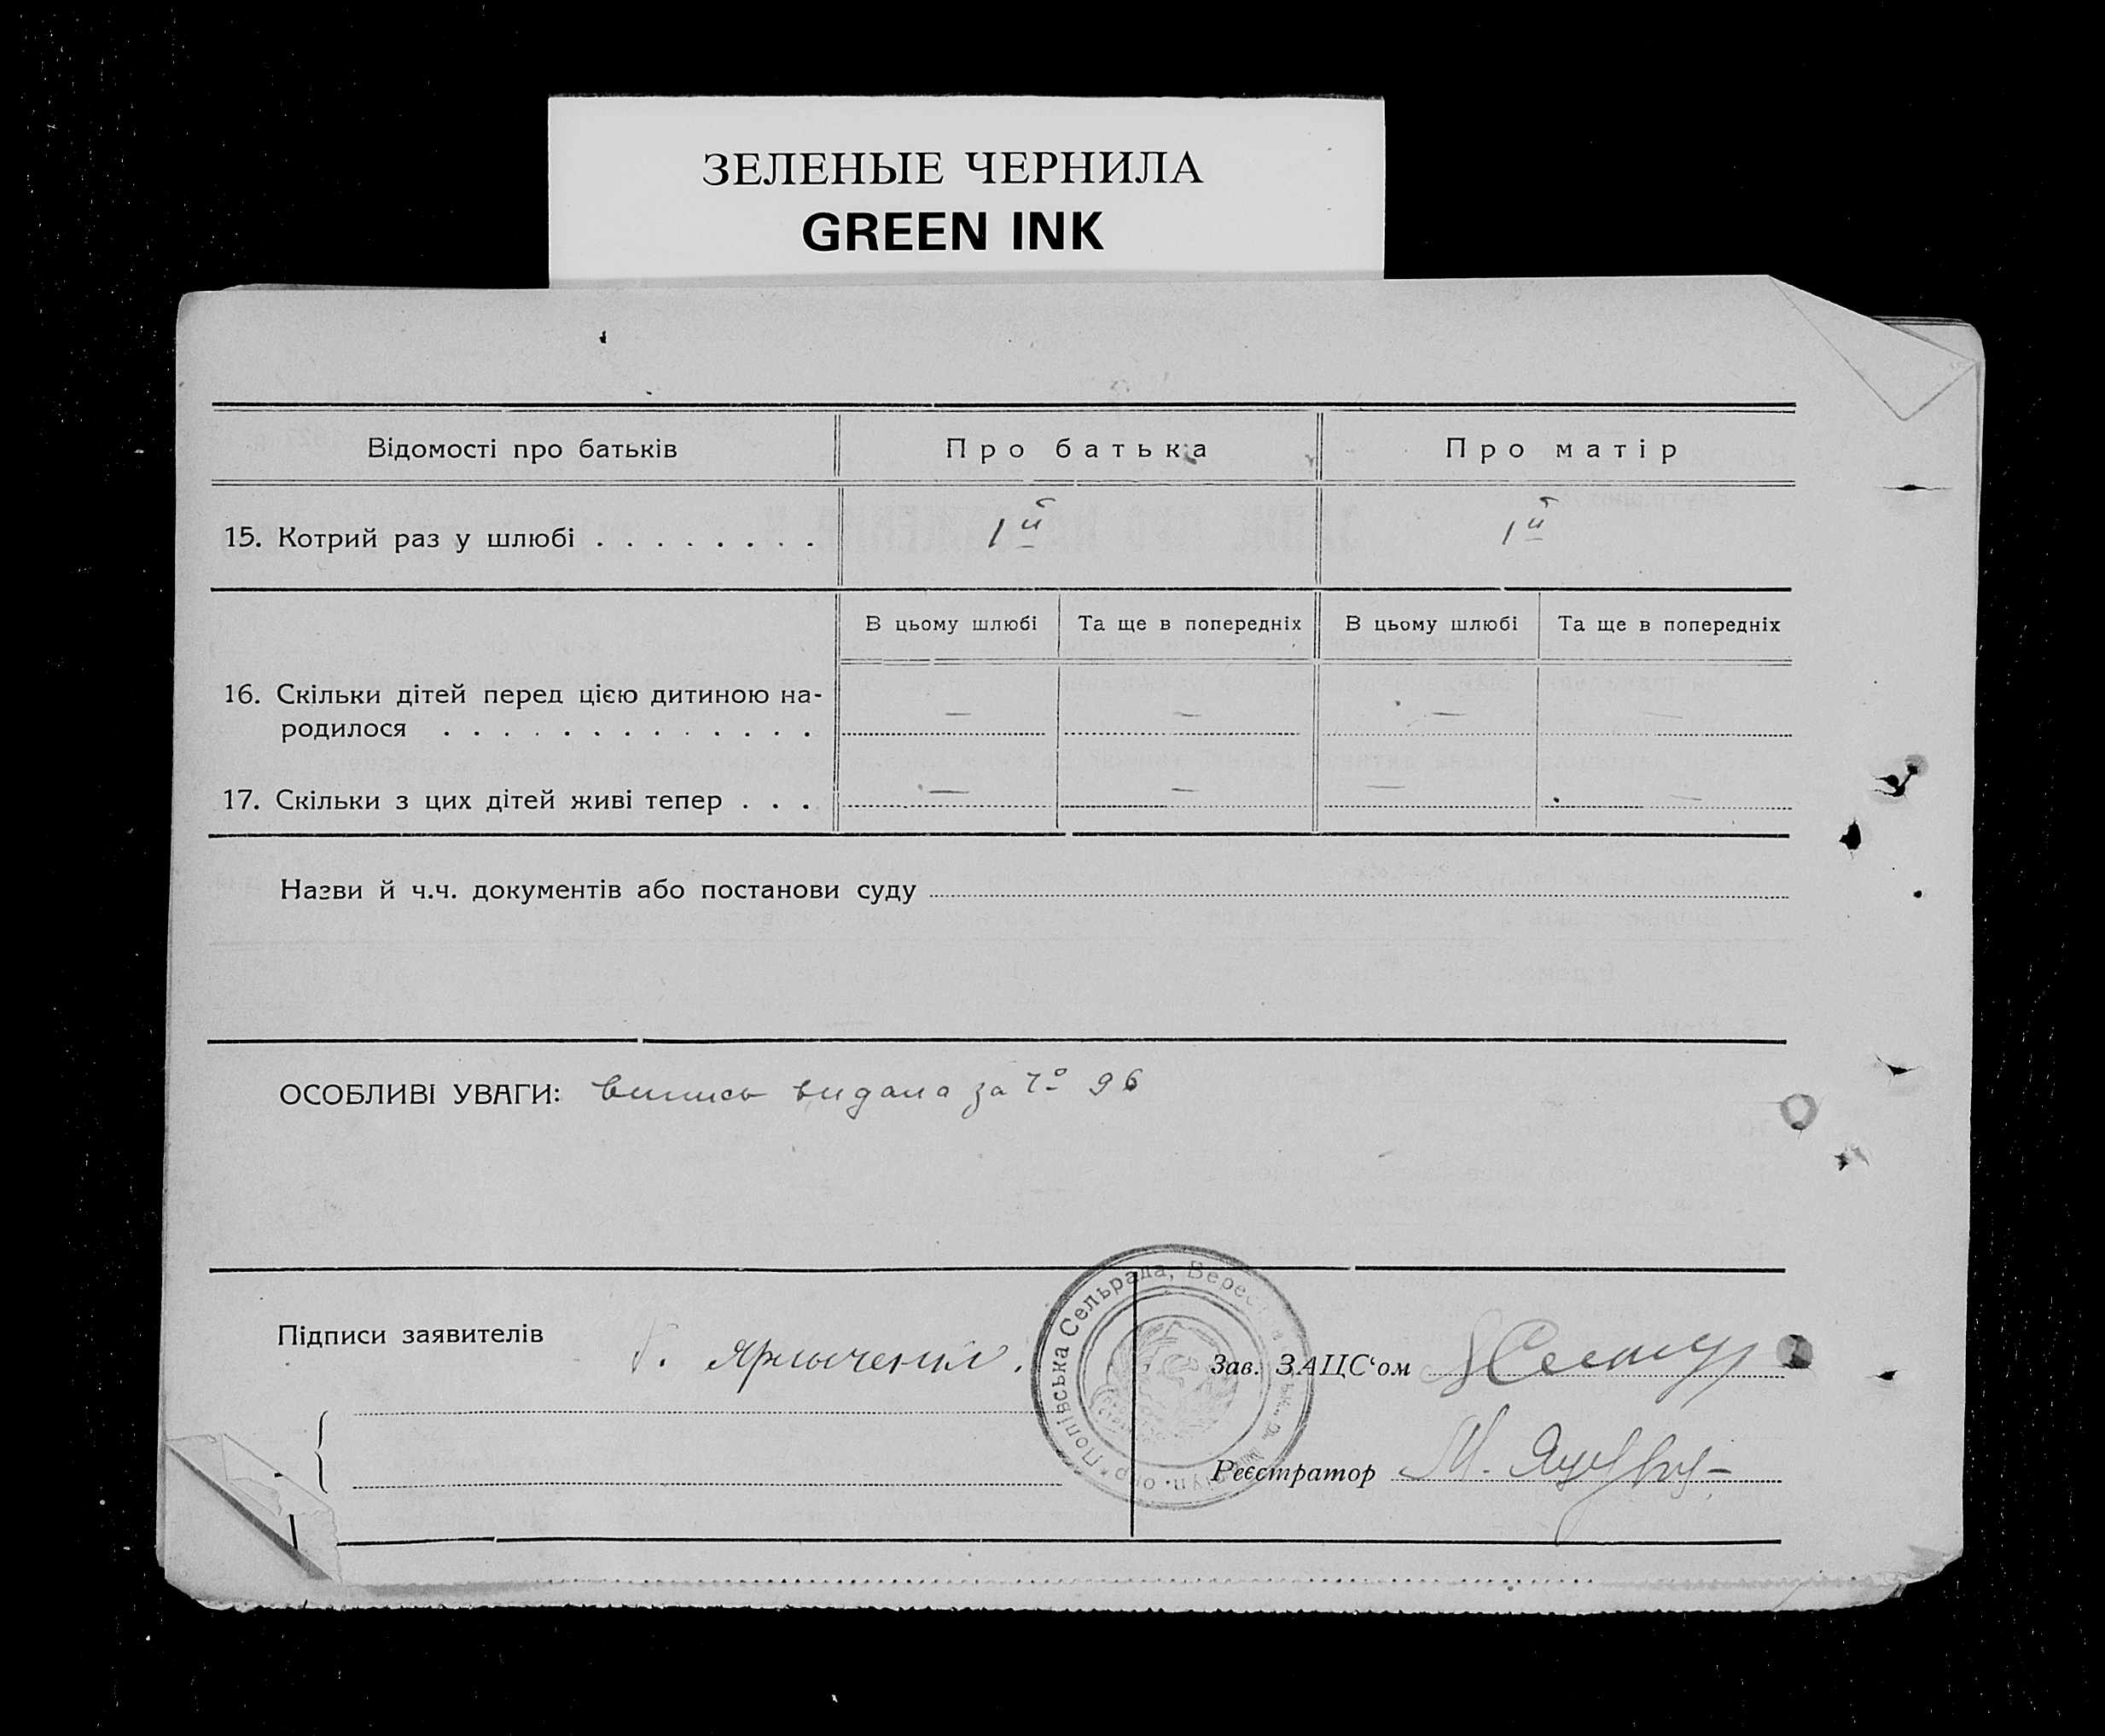 ЗЕЛЕНЫЕ ЧЕРНИЛА
GREEN INK
Відомості про батьків Про батька Про матір
15. Котрий раз у шлюбі . . . . . . . . 1й 1й
В цьому шлюбі Та ще в попередніх В цьому шлюбі Та ще в попередніх
16. Скільки дітей перед цією дитиною на-
родилося . . . . . . . . . . . . . — — — —
17. Скільки з цих дітей живі тепер . . . — — — —
Назви й ч.ч. документів або постанови суду
ОСОБЛИВІ УВАГИ: випись видана за 96
Попівська Сельрада,
Підписи заявителів
Зав. ЗАЦС‘ом
Реєстратор М.